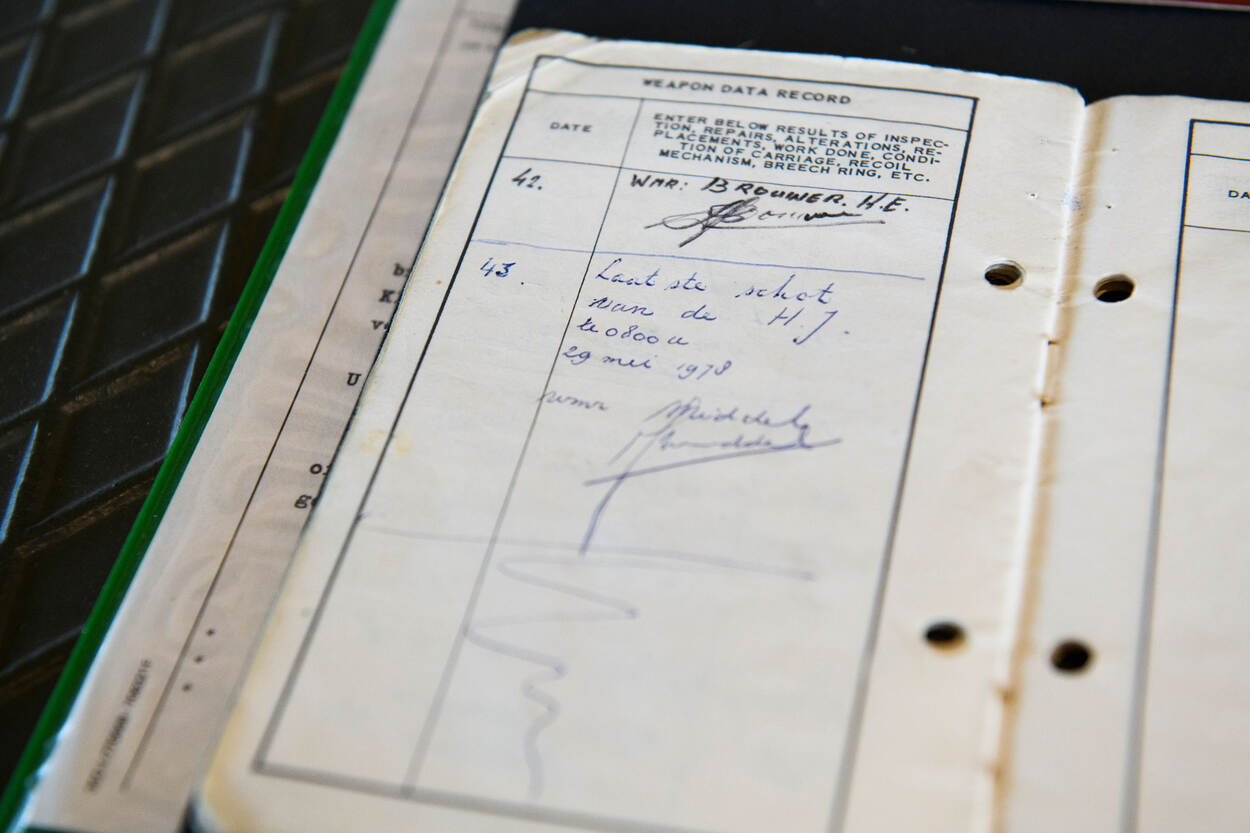 WEAPON DATA RECORD
DATE
ENTER BELOW RESULTS OF INSPEC-
TION, REPAIRS, ALTERATIONS, RE-
PLACEMENTS, WORK DONE, CONDI-
TION OF CARRIAGE, RECOIL
MECHANISM, BREECH RING, ETC.
42.
WMR: BROUWER. H.E.
43.
Laatste schot
van de H.J.
te 0800 u
29 mei 1978
wmr
U
DA